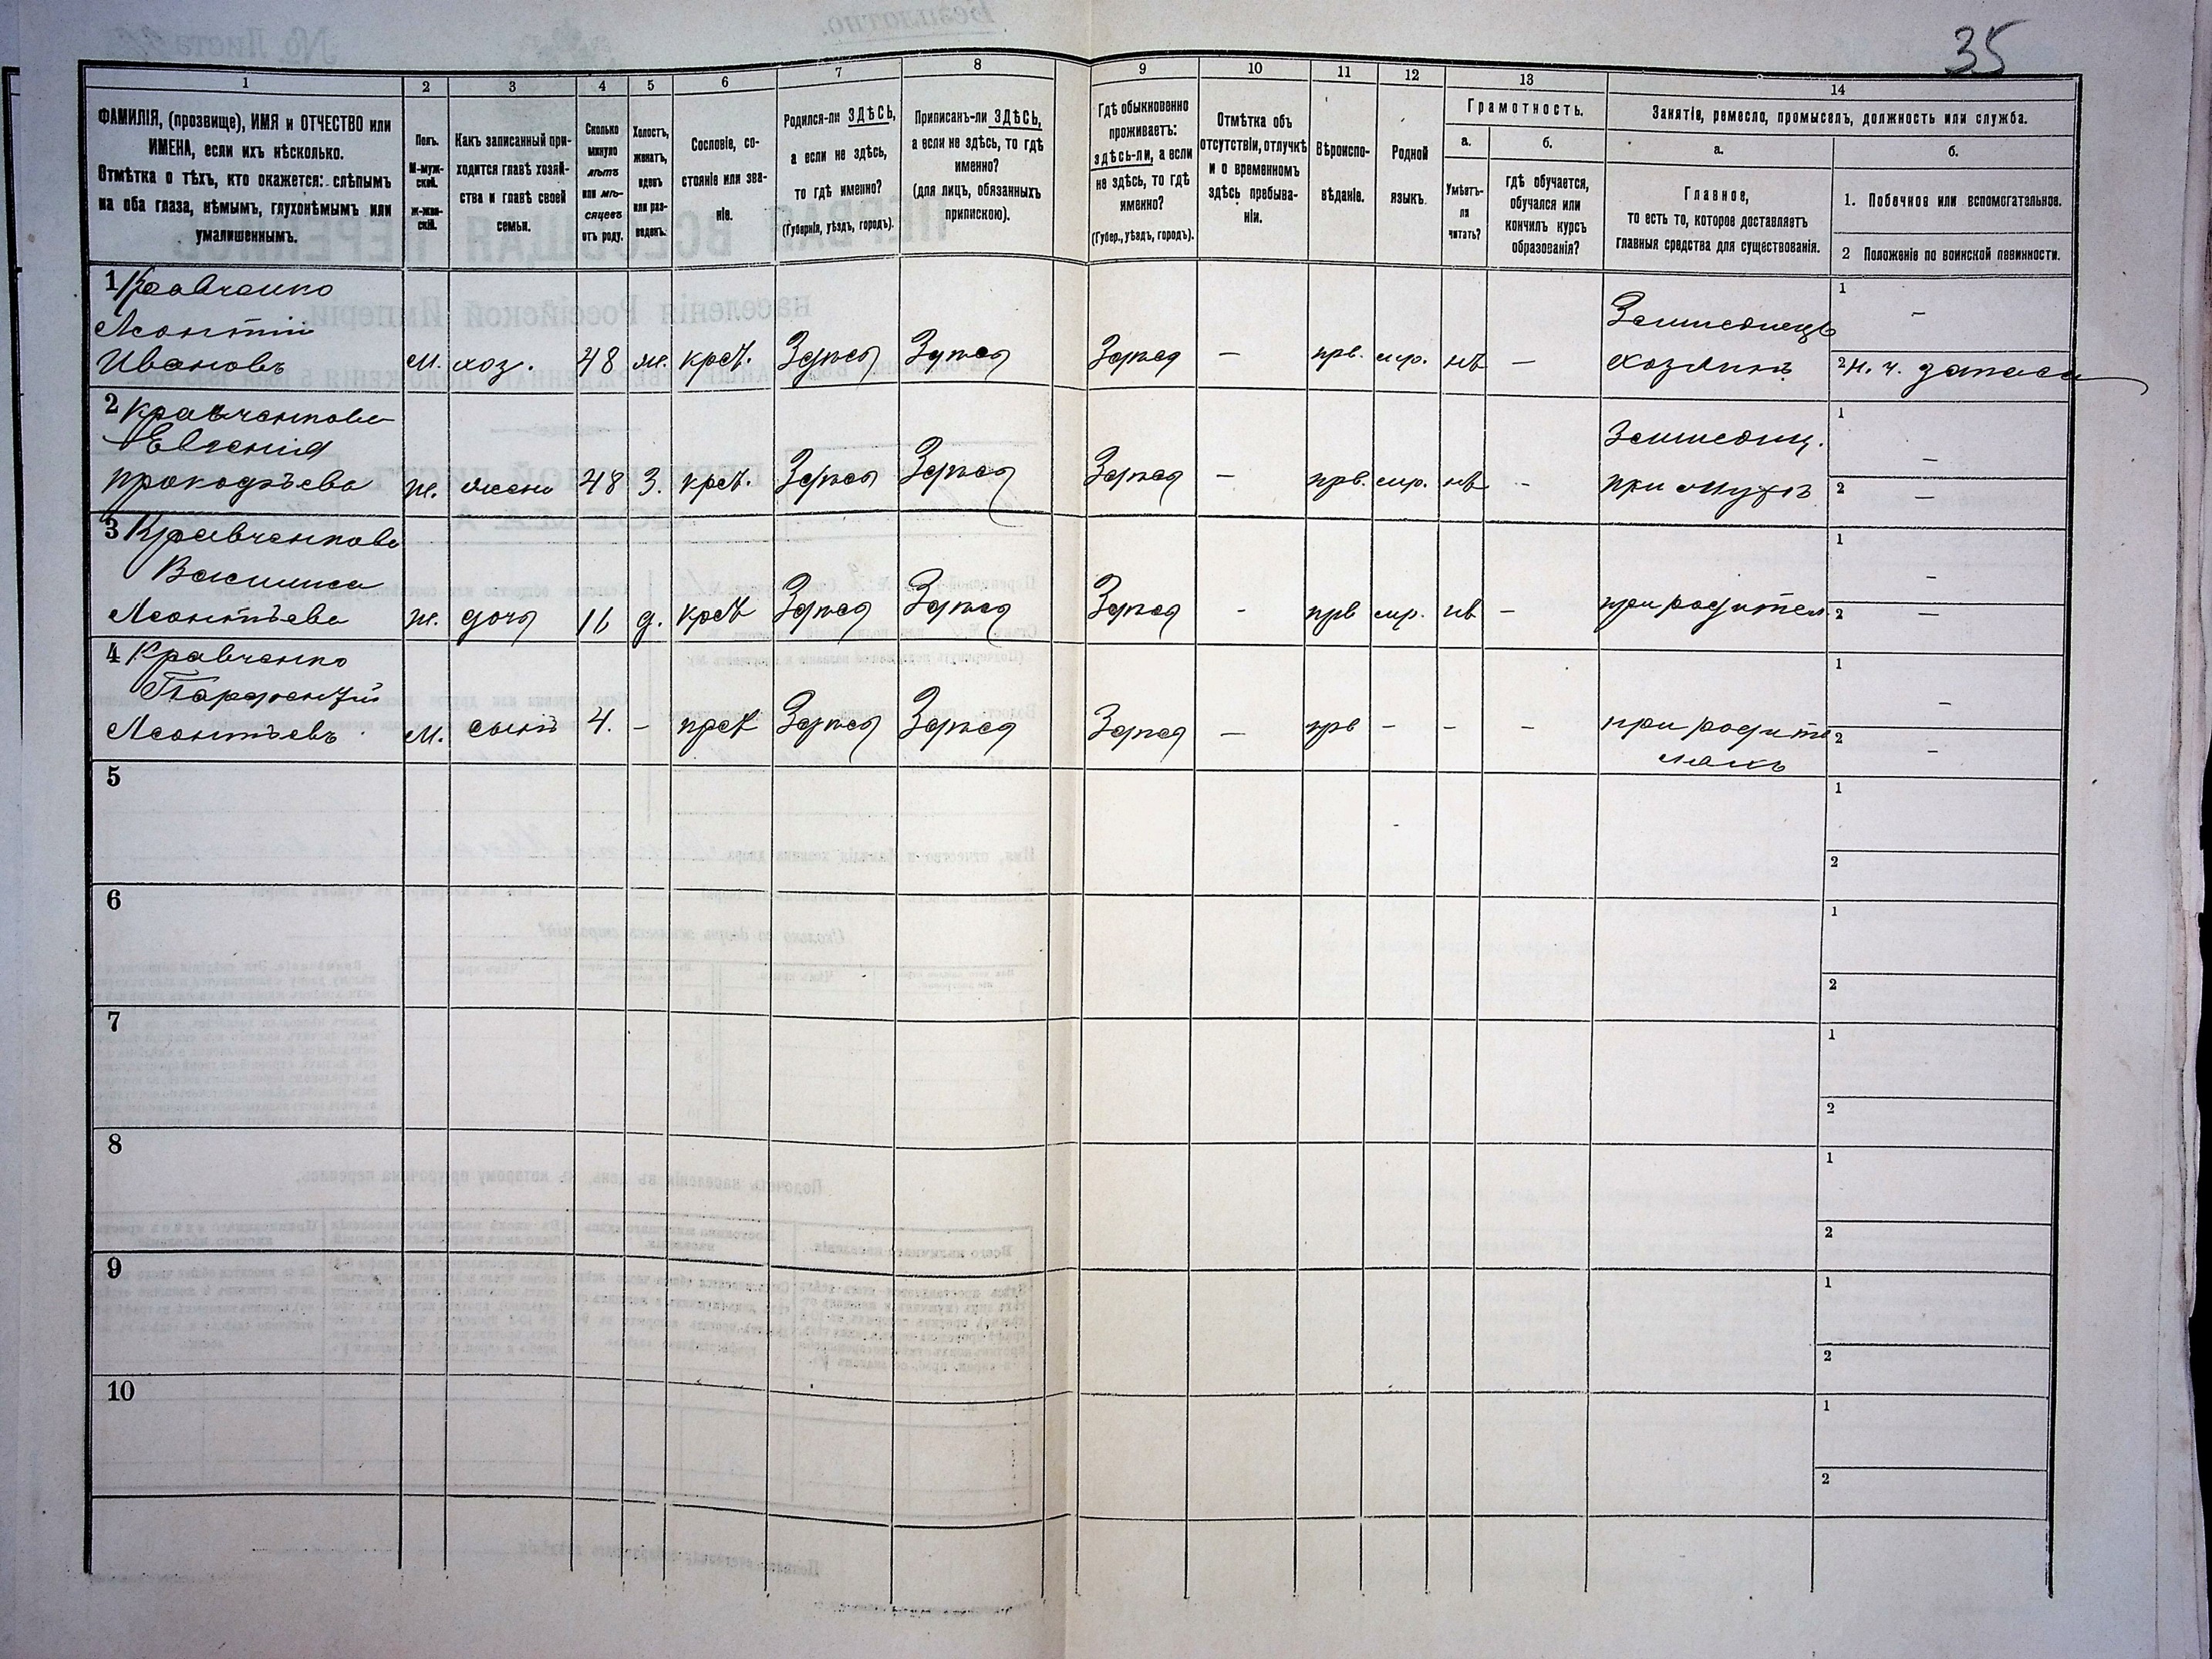 35
1
2
3
4
5
6
7
8
9
10
11
12
13
14
ФАМИЛІЯ, (прозвище), ИМЯ и ОТЧЕСТВО или
ИМЕНА, если ихъ нѣсколько.
Отмѣтка о тѣхъ, кто окажется: слѣпымъ
на оба глаза, нѣмымъ, глухонѣмымъ или
умалишеннымъ.
Полъ.
М-муж-
ской.
ж-жен-
скій.
Какъ записанный при-
ходится главѣ хозяй-
ства и главѣ своей
семьи.
Сколько
минуло
лѣтъ
или мѣ-
сяцевъ
отъ роду.
Холостъ,
женатъ,
вдовъ
или раз-
веденъ.
Сословіе, со-
стояніе или зва-
ніе.
Родился-ли ЗДѢСЬ,
а если не здѣсь,
то гдѣ именно?
(Губернія, уѣздъ, городъ).
Приписанъ-ли ЗДѢСЬ,
а если не здѣсь, то гдѣ
именно?
(для лицъ, обязанныхъ
припискою).
Гдѣ обыкновенно
проживаетъ:
здѣсь-ли, а если
не здѣсь, то гдѣ
именно?
(Губер., уѣздъ, городъ).
Отмѣтка объ
отсутствіи, отлучкѣ
и о временномъ
здѣсь пребыва-
ніи.
Вѣроиспо-
вѣданіе.
Родной
языкъ.
Грамотность.
а.
Умѣетъ-
ли
читать?
б.
гдѣ обучается,
обучался или
кончилъ курсъ
образованія?
Занятіе, ремесло, промыселъ, должность или служба.
а.
Главное,
то есть то, которое доставляетъ
главныя средства для существованія.
б.
1. Побочное или вспомогательное.
2 Положеніе по воинской повинности.
1 Кравченко
Леонтій
Ивановъ
м. хоз. 48 ж. крст. Здѣсь Здѣсь Здѣсь — прв. мр. нѣ —
Землédѣлецъ
хозяинъ
1 —
2 н. ч. запаса
2 Кравченкова
Евгенія
Прокофьева
ж. жена 48 З. крст. Здѣсь Здѣсь Здѣсь — прв. мр. нѣ -
Земледѣл.
при мужѣ
1 —
2 —
3 Кравченкова
Василиса
Леонтьева
ж. дочь 16 д. крст Здѣсь Здѣсь Здѣсь - прв мр. нѣ —
при родител.
1 -
2 —
4 Кравченко
Парфентій
Леонтьевъ
м. сынъ 4. - крст Здѣсь Здѣсь Здѣсь — прв - - -
при родите
ляхъ
1 -
2 -
5
1
2
6
1
2
7
1
2
8
1
2
9
1
2
10
1
2